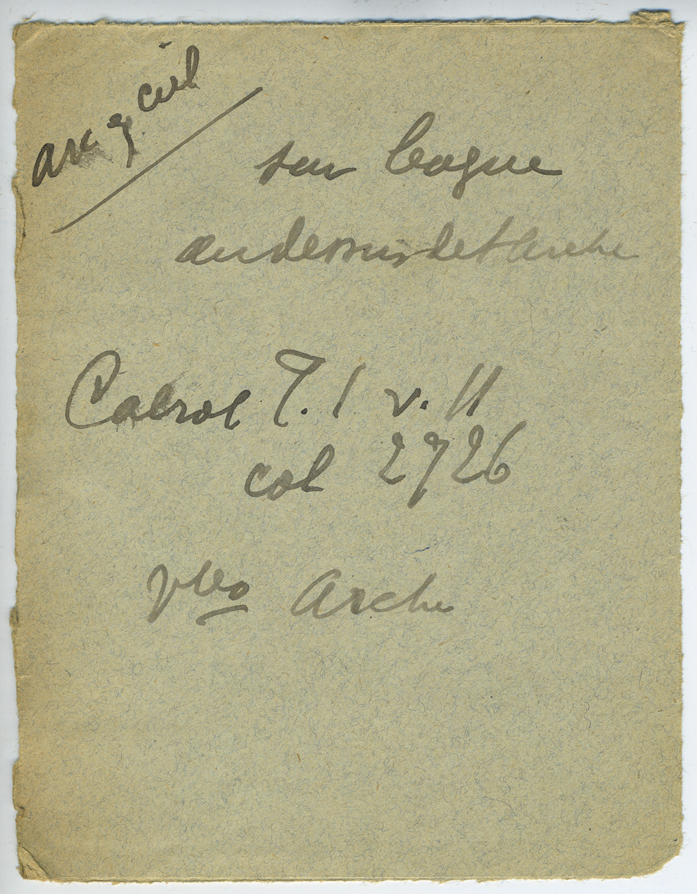 arc en ciel
sur bague
au dessus de l'Arche
Cabrol T. I v. II
col 2726
vbo Arche